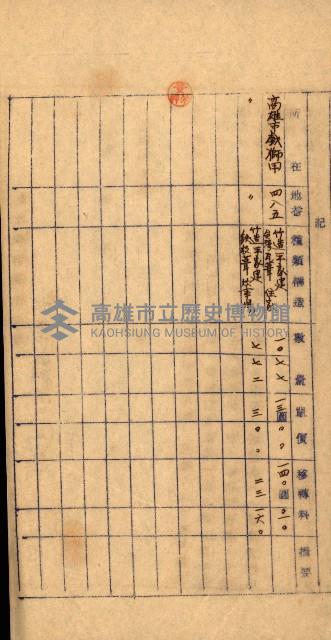 記
所在 地番 種類構造 數量 單價 移轉料 摘要
高雄市戲獅甲 四八五 竹造平家建 住家 一〇七七 一三圓〇〇 一四〇圓〇一
〃 〃 竹造平家建 七七二 三〇〇 二三一六〇
高雄市立歷史博物館
KAOHSIUNG MUSEUM OF HISTORY